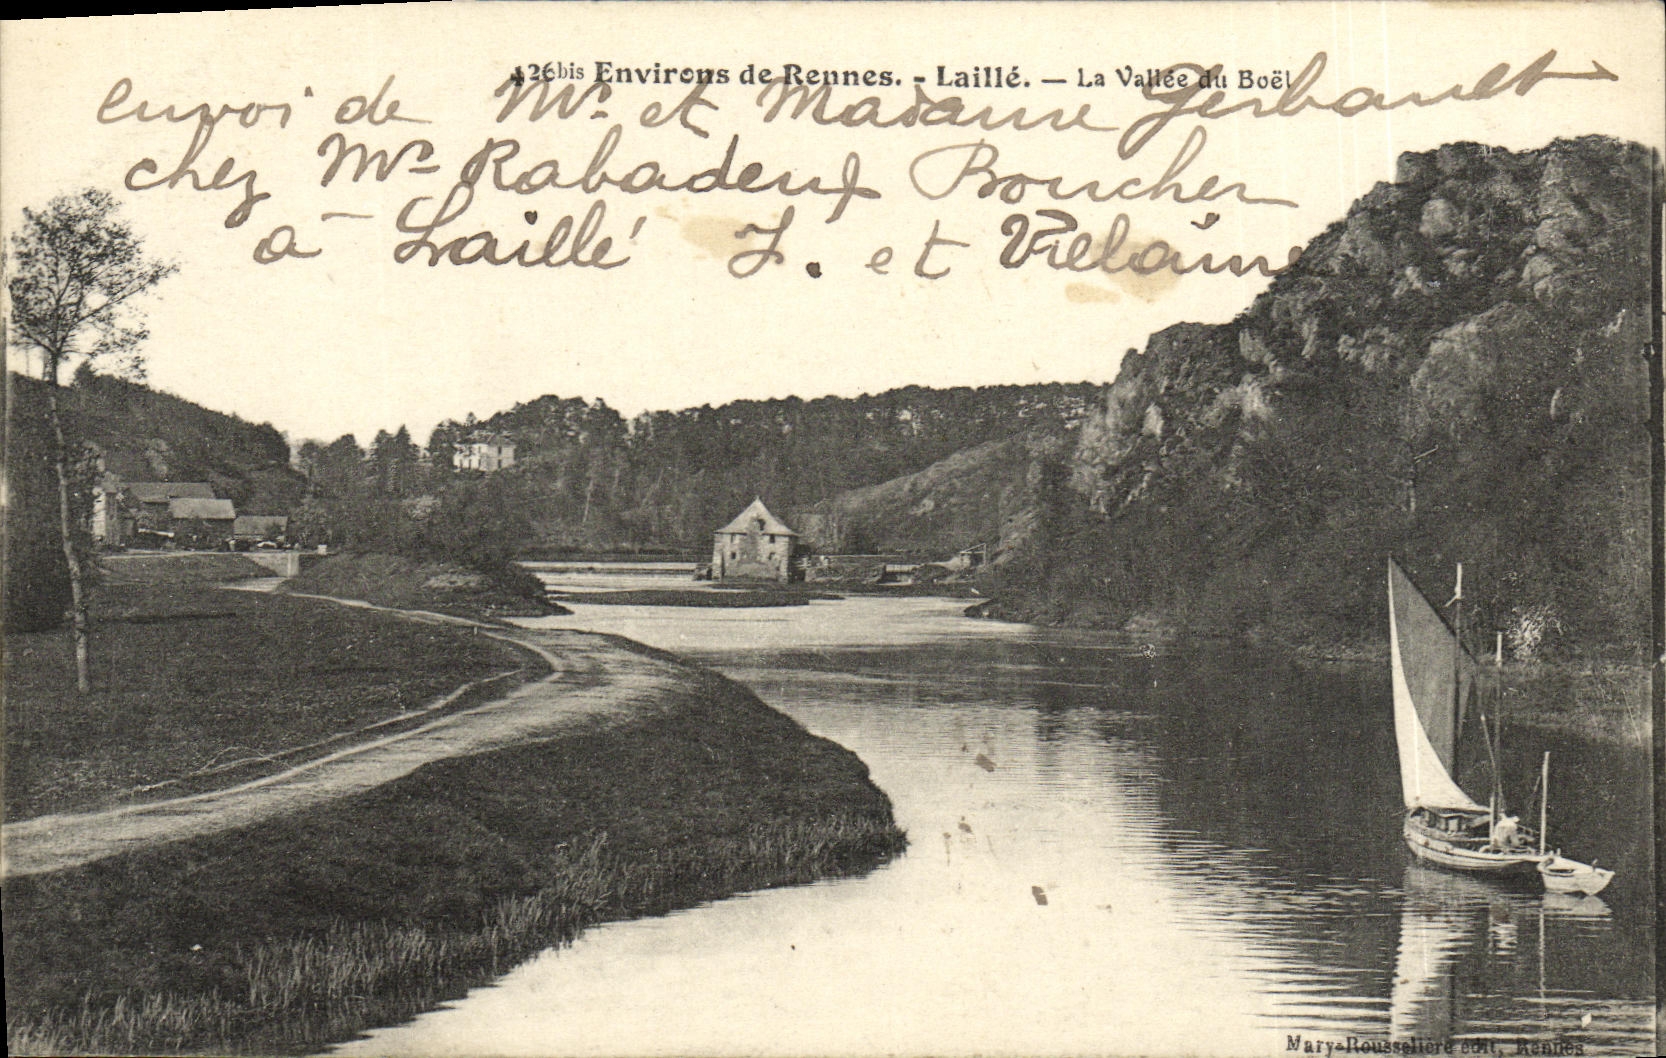 426bis Environs de Rennes. - Laillé. — La Vallée du Boël
Envoi de Mr et Madame Gerbault
chez Mr Rabadeux Boucher
à Laillé I. et Vilaine
Mary-Rousselière édit, Rennes